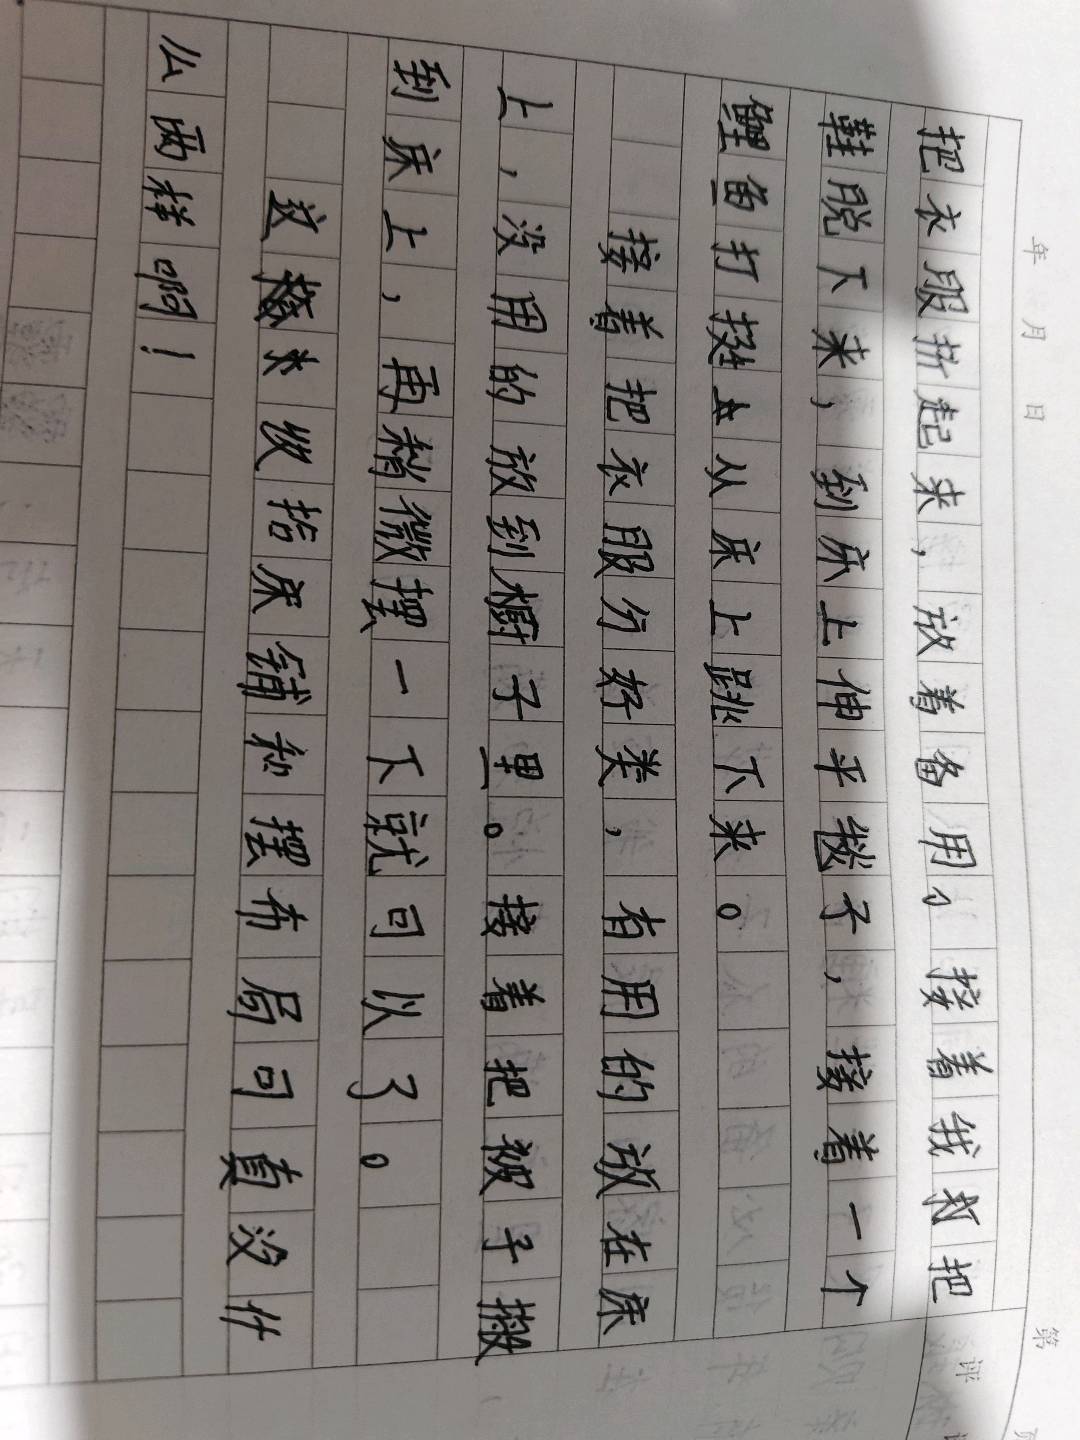 年 月 日
第 页
评
把衣服折起来，放着备用。接着我才把
鞋脱下来，到床上伸平毯子，接着一个
鲤鱼打挺从床上跳下来。
接着把衣服分好类，有用的放在床
上，没用的放到橱子里。接着把被子搬
到床上，再稍微摆一下就可以了。
这收拾床铺和摆布局可真没什
么两样啊！